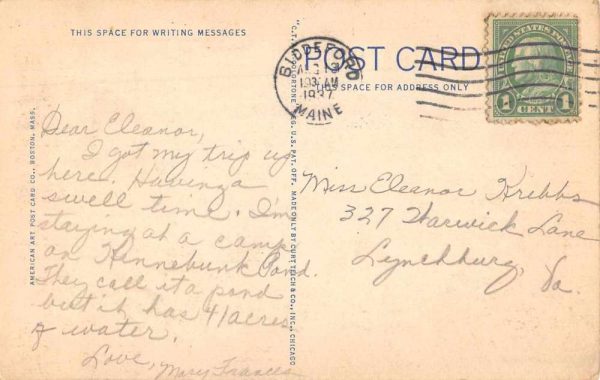 THIS SPACE FOR WRITING MESSAGES
POST CARD
THIS SPACE FOR ADDRESS ONLY
BIDDEFORD
1937
MAINE
UNITED STATES
1 CENT 1
AMERICAN ART POST CARD CO., BOSTON, MASS.
REG. U.S. PAT. OFF. MADE ONLY BY CURT TEICH & CO., INC., CHICAGO
Dear Eleanor,
I got my trip up
here. Having a
swell time. I'm
staying at a camp
on Kennebunk Pond.
They call it a pond
but it has 41 acres
of water.
Love, Mary Frances
Miss Eleanor Kribbs
327 Warwick Lane
Lynchburg,
Va.